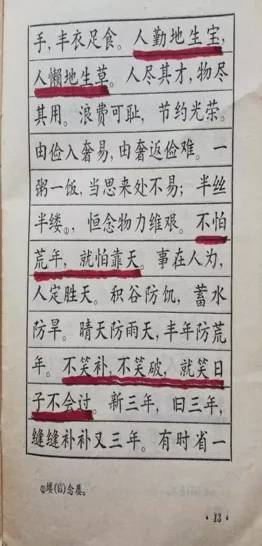 手,丰衣足食。人勤地生宝,
人懒地生草。人尽其才,物尽
其用。浪费可耻,节约光荣。
由俭入奢易,由奢返俭难。一
粥一饭,当思来处不易;半丝
半缕①,恒念物力维艰。不怕
荒年,就怕靠天。事在人为,
人定胜天。积谷防饥,蓄水
防旱。晴天防雨天,丰年防荒
年。不笑补,不笑破,就笑日
子不会过。新三年,旧三年,
缝缝补补又三年。有时省一
· 13 ·